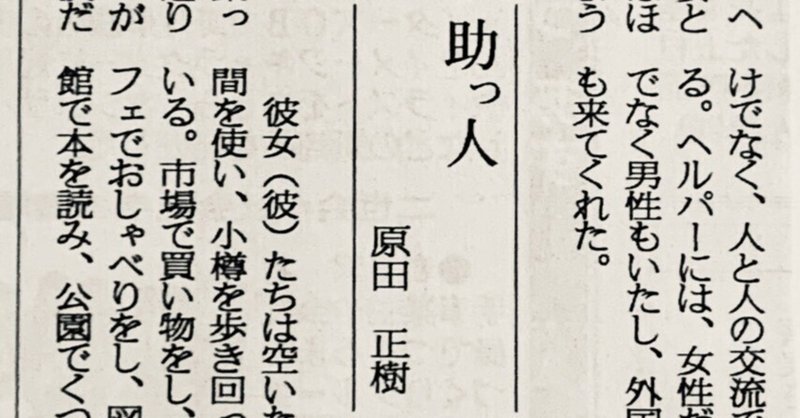 へ
と
ほ
う
けでなく、人と人の交流で
る。ヘルパーには、女性だ
でなく男性もいたし、外国
も来てくれた。
助っ人
原田　正樹
っ
り
が
だ
彼女（彼）たちは空いた
間を使い、小樽を歩き回っ
いる。市場で買い物をし、
フェでおしゃべりをし、図
館で本を読み、公園でくつ